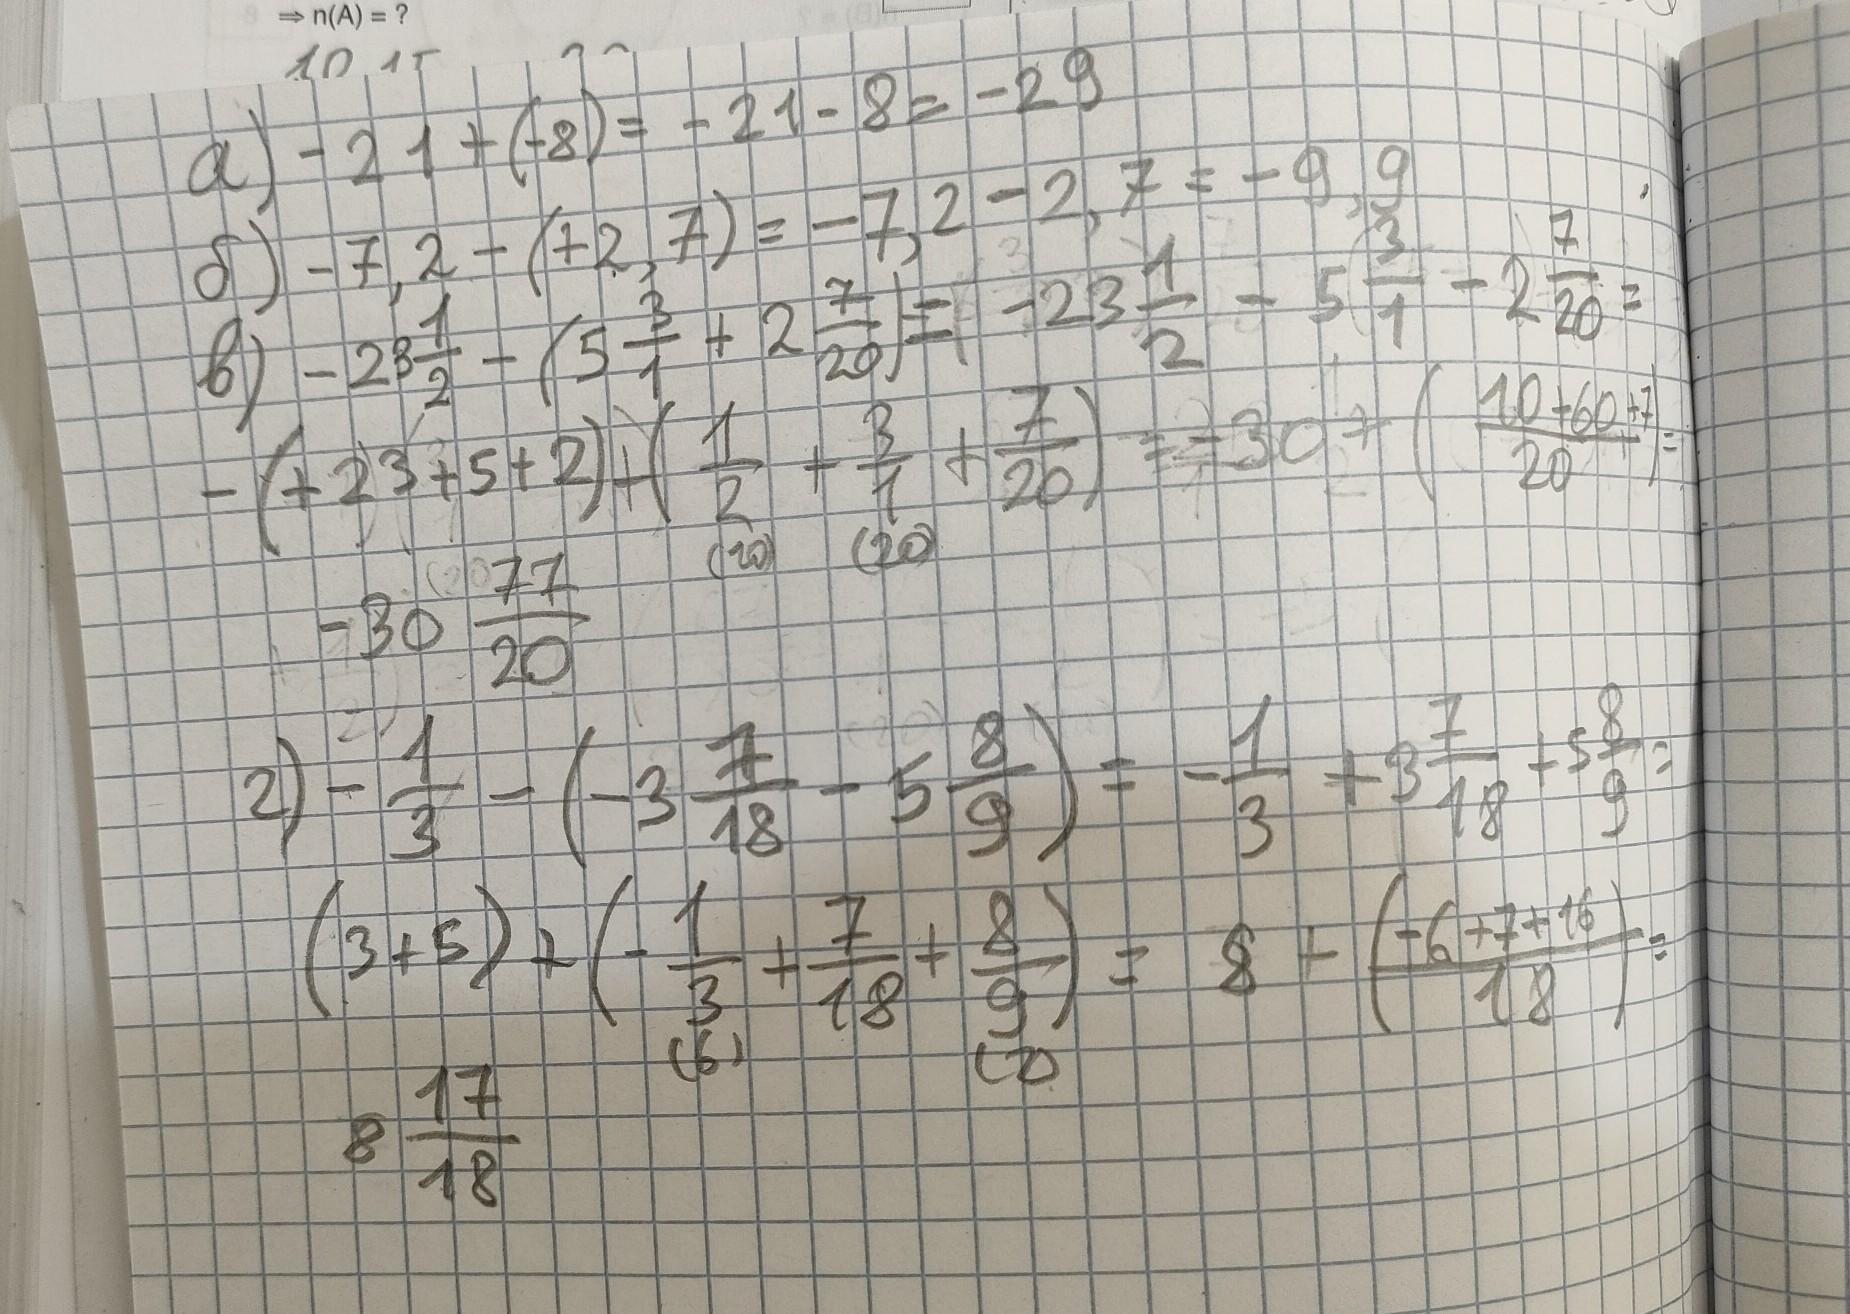 ⇒ n(A) = ?
а) -21 + (-8) = -21 - 8 = -29
б) -7,2 - (+2,7) = -7,2 - 2,7 = -9,9
в) -23 1/2 - (5 3/1 + 2 7/20) = -23 1/2 - 5 3/1 - 2 7/20 =
-(+23+5+2)+(1/2 + 3/1 + 7/20) = -30 + (10+60+7/20) =
(10) (20)
-30 77/20
г) -1/3 - (-3 7/18 - 5 8/9) = -1/3 + 3 7/18 + 5 8/9 =
(3+5) + (-1/3 + 7/18 + 8/9) = 8 + (-6+7+16/18) =
(6)
8 17/18